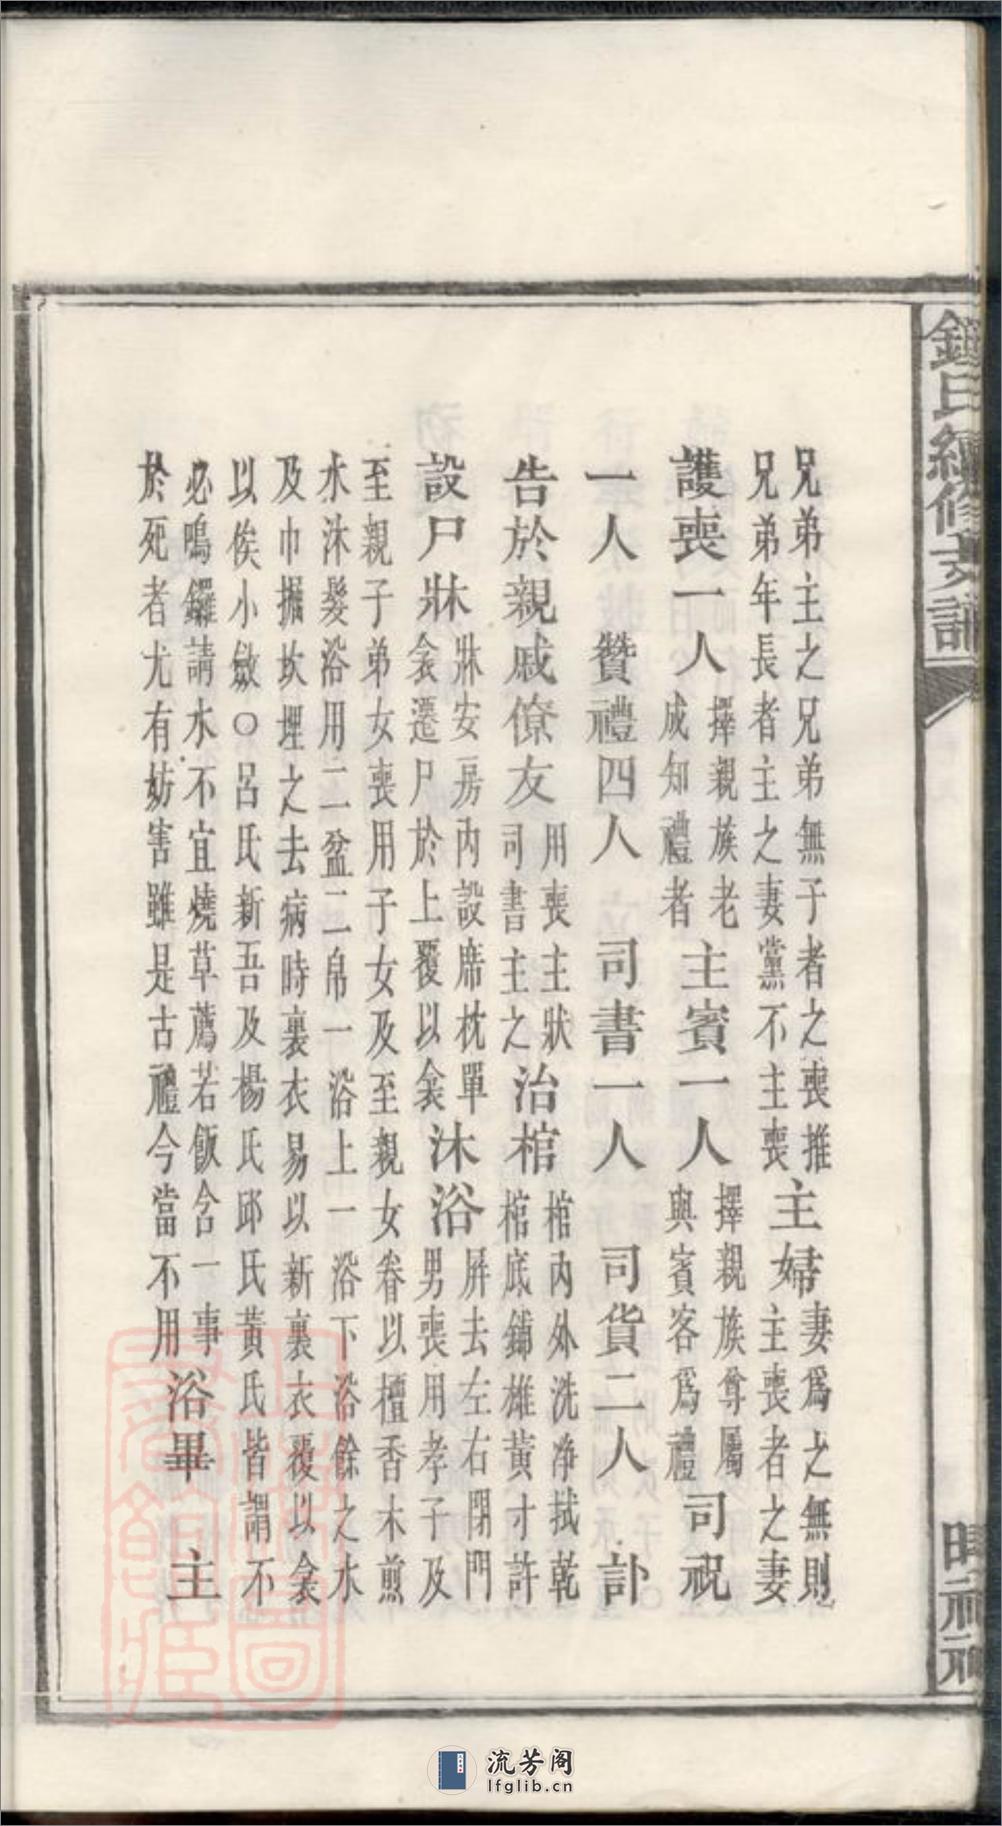 兄弟主之兄弟無子者之喪推
兄弟年長者主之妻黨不主喪
主婦
妻爲之無則
主喪者之妻
護喪一人
擇親族老
成知禮者
主賓一人
擇親族尊屬
與賓客爲禮
司祝
一人 贊禮四人 司書一人 司貨二人 訃
告於親戚僚友
用喪主狀
司書主之
治棺
棺內外洗净拭乾
棺底鋪雄黃寸許
設尸牀
牀安房內設席枕單
衾遷尸於上覆以衾
沐浴
屏去左右閉門
男喪用孝子及
至親子弟女喪用子女及至親女眷以檀香木煎
水沐髮浴用二盆二帛一浴上一浴下浴餘之水
及巾掘坎埋之去病時裏衣易以新裏衣覆以衾
以俟小斂○呂氏新吾及楊氏邱氏黃氏皆謂不
必鳴鑼請水不宜燒草薦若飯含一事
於死者尤有妨害雖是古禮今當不用
浴畢 主
氏續修支譜
流芳阁
lfglib.cn